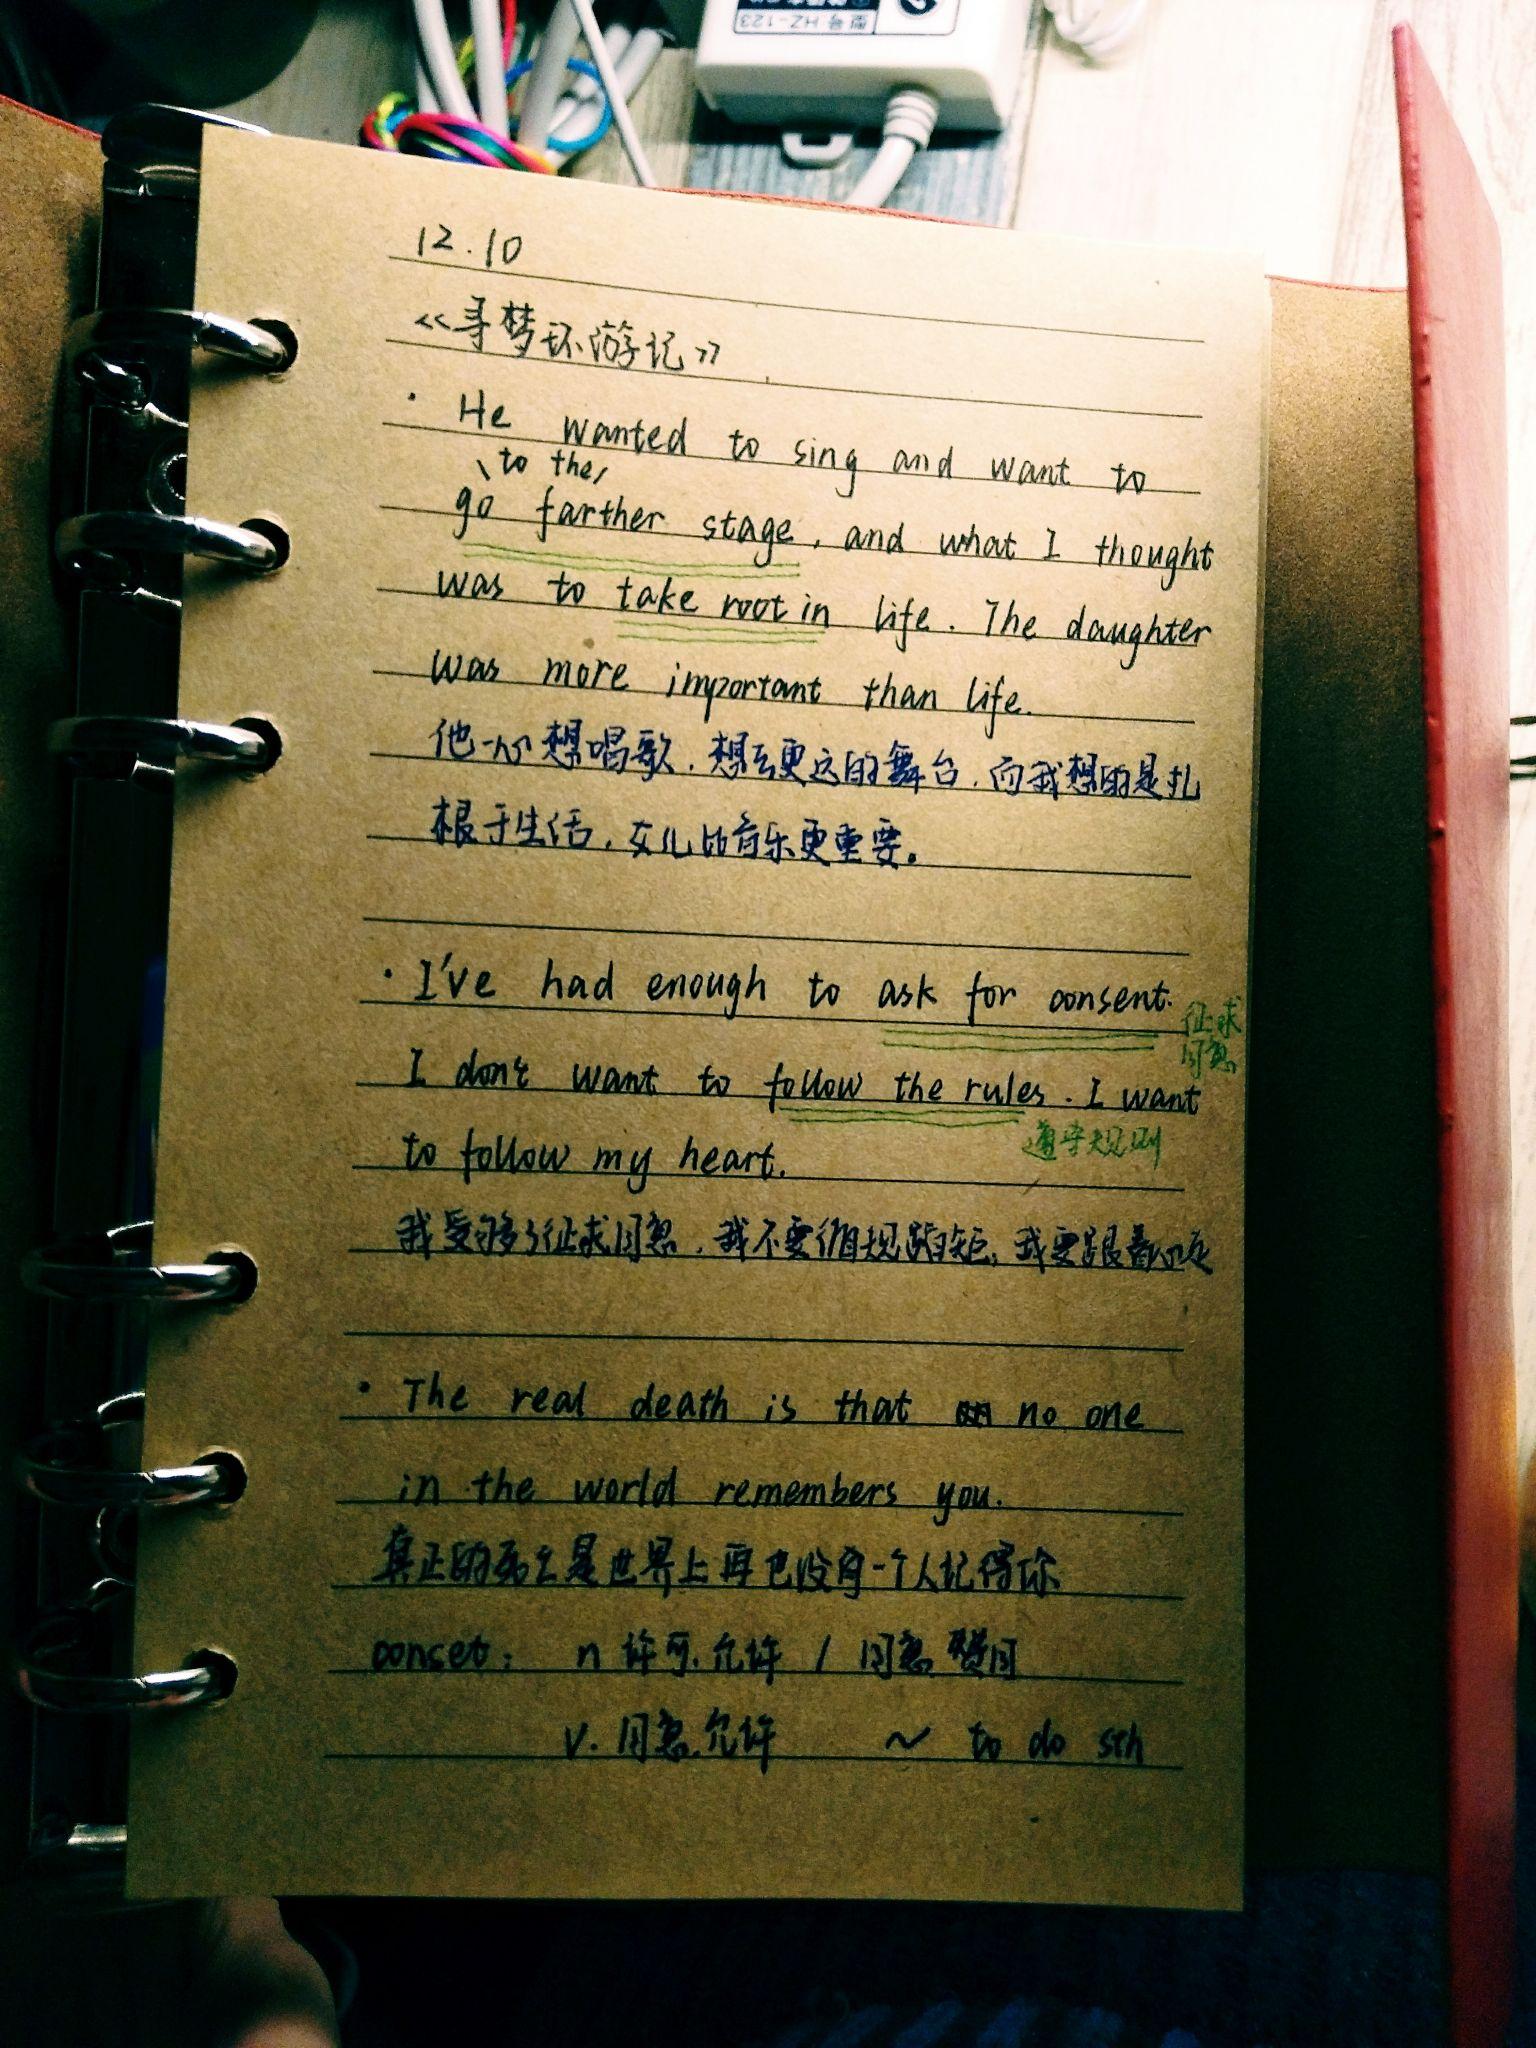 型号 HZ-123
12.10
《寻梦环游记》
· He wanted to sing and want to
to the
go farther stage, and what I thought
was to take root in life. The daughter
was more important than life.
他一心想唱歌,想去更远的舞台,而我想的是扎
根于生活,女儿比音乐更重要。
· I've had enough to ask for consent.
征求
同意
I don't want to follow the rules. I want
遵守规则
to follow my heart.
我受够了征求同意,我不要循规蹈矩,我要跟着心走
· The real death is that no one
in the world remembers you.
真正的死亡是世界上再也没有一个人记得你
conset: n 许可,允许 / 同意费用
v. 同意,允许 ~ to do sth